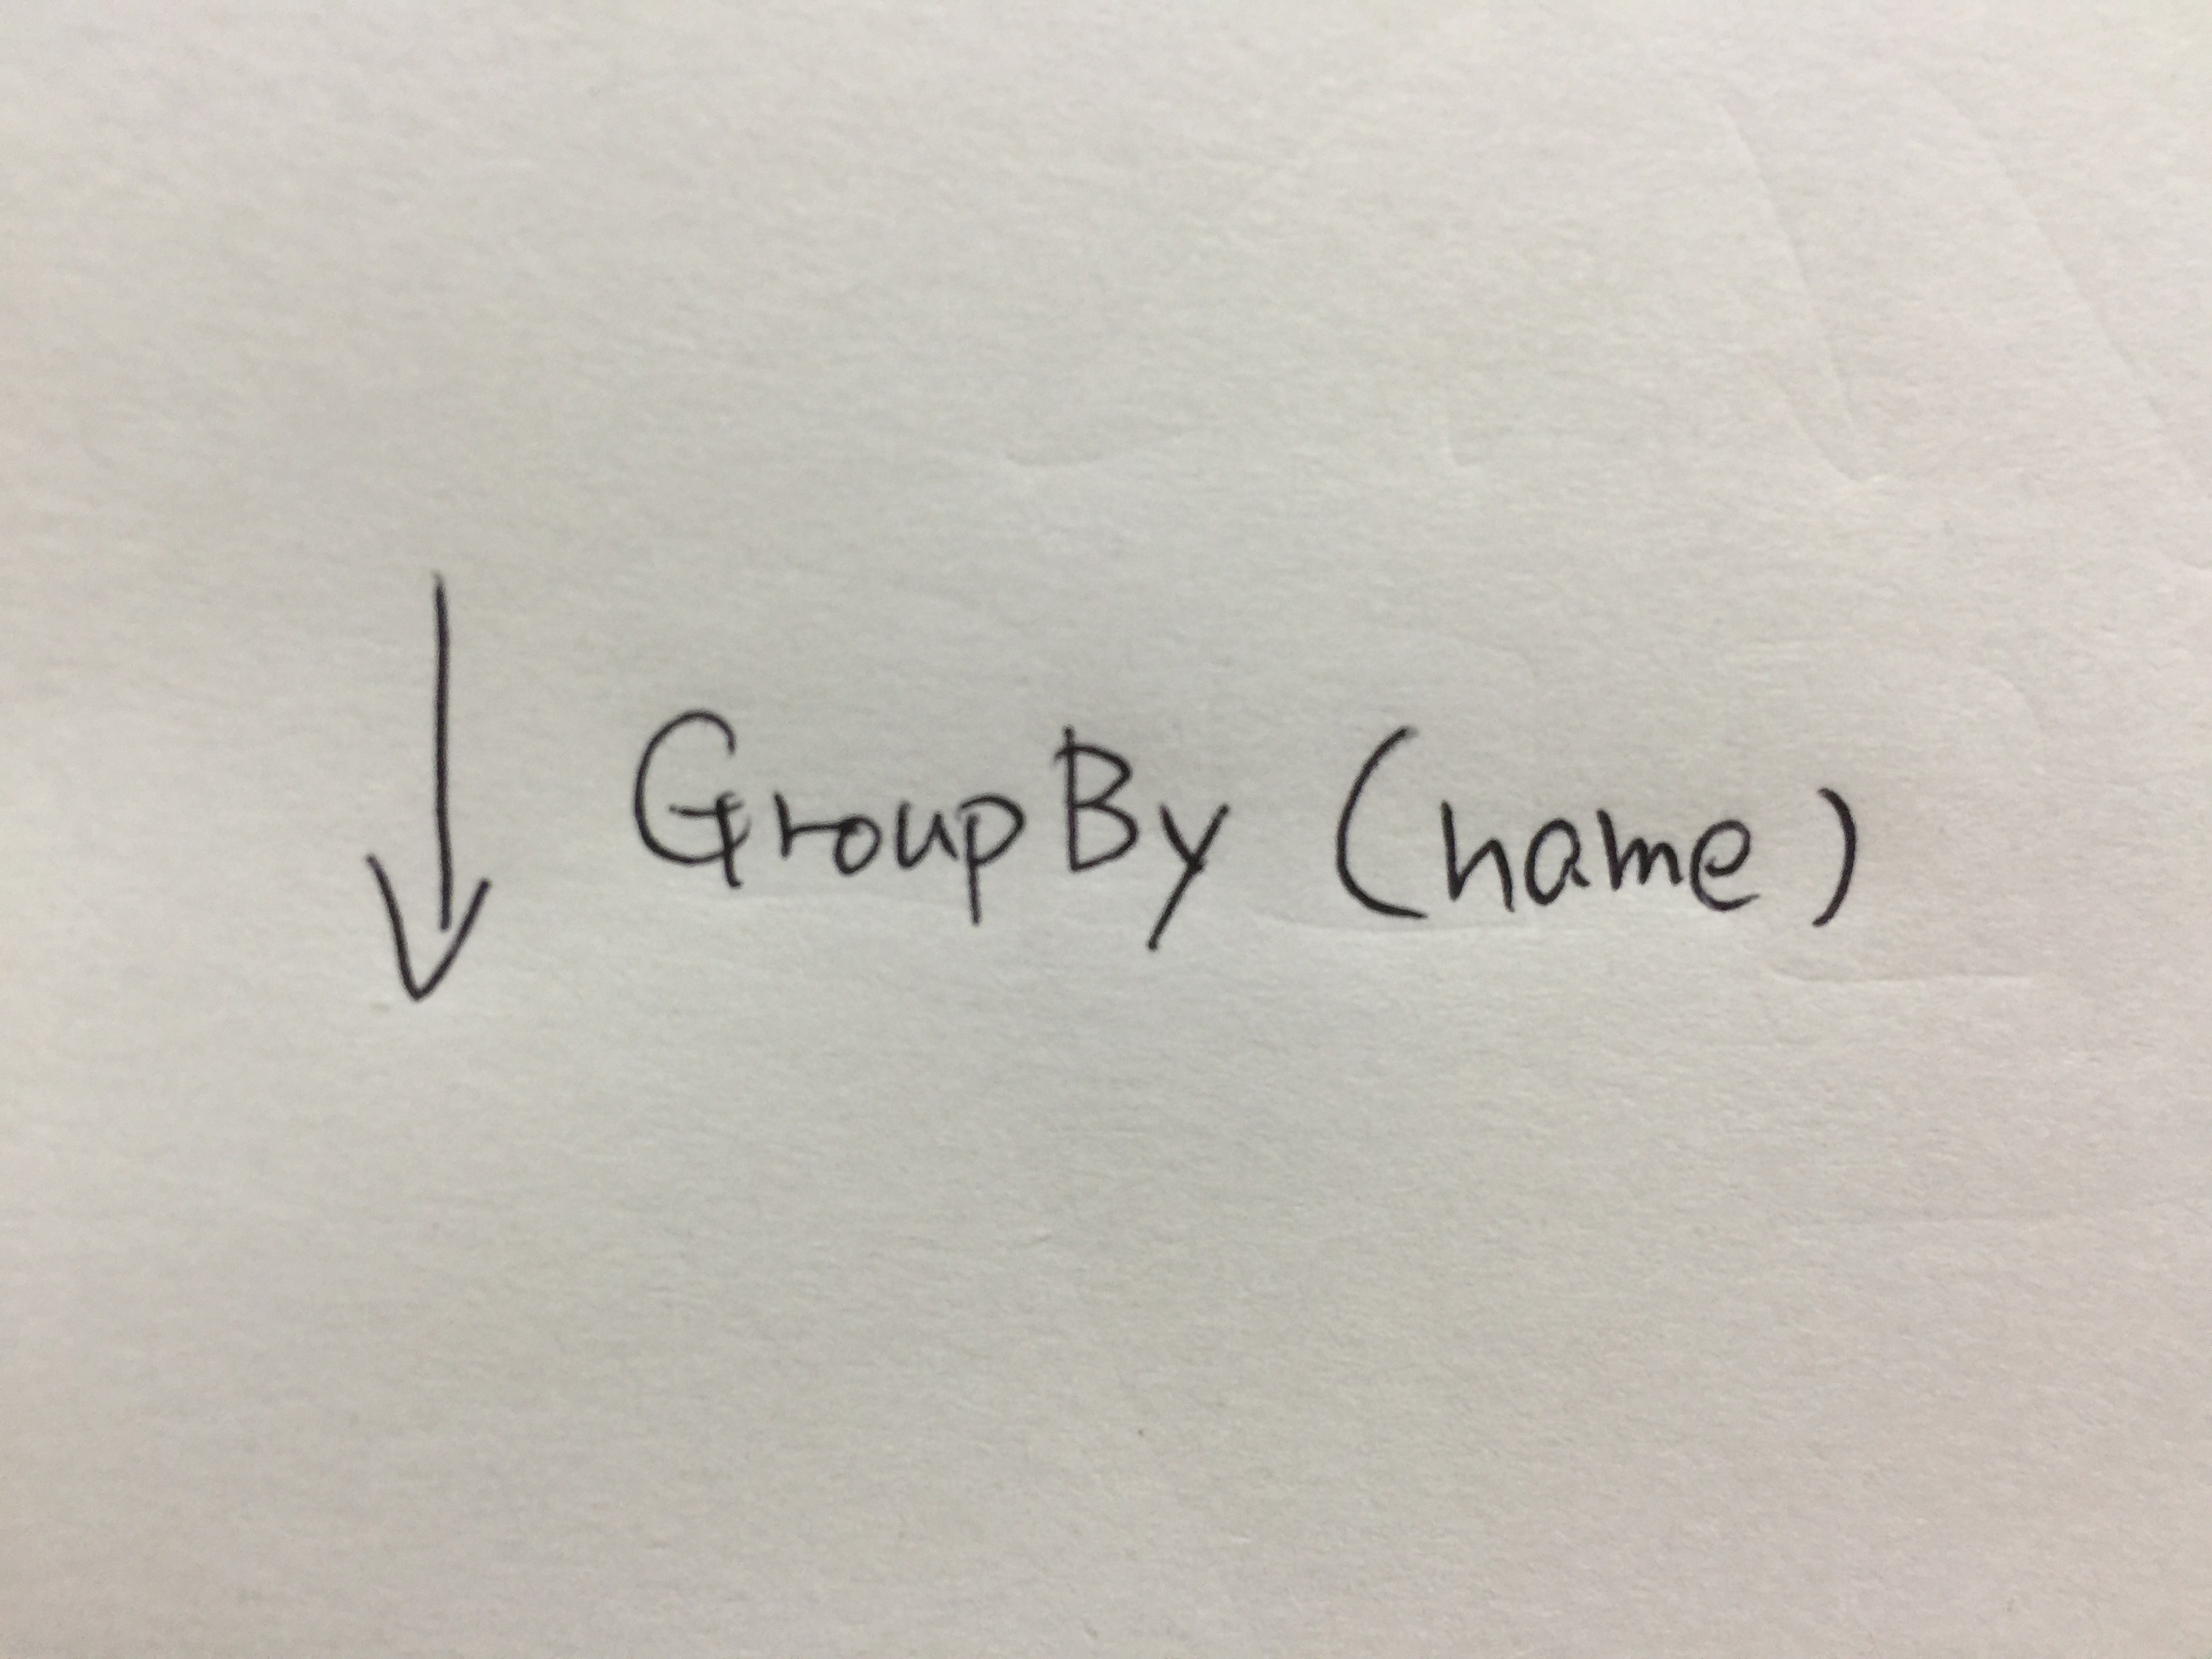 ↓ GroupBy (name)